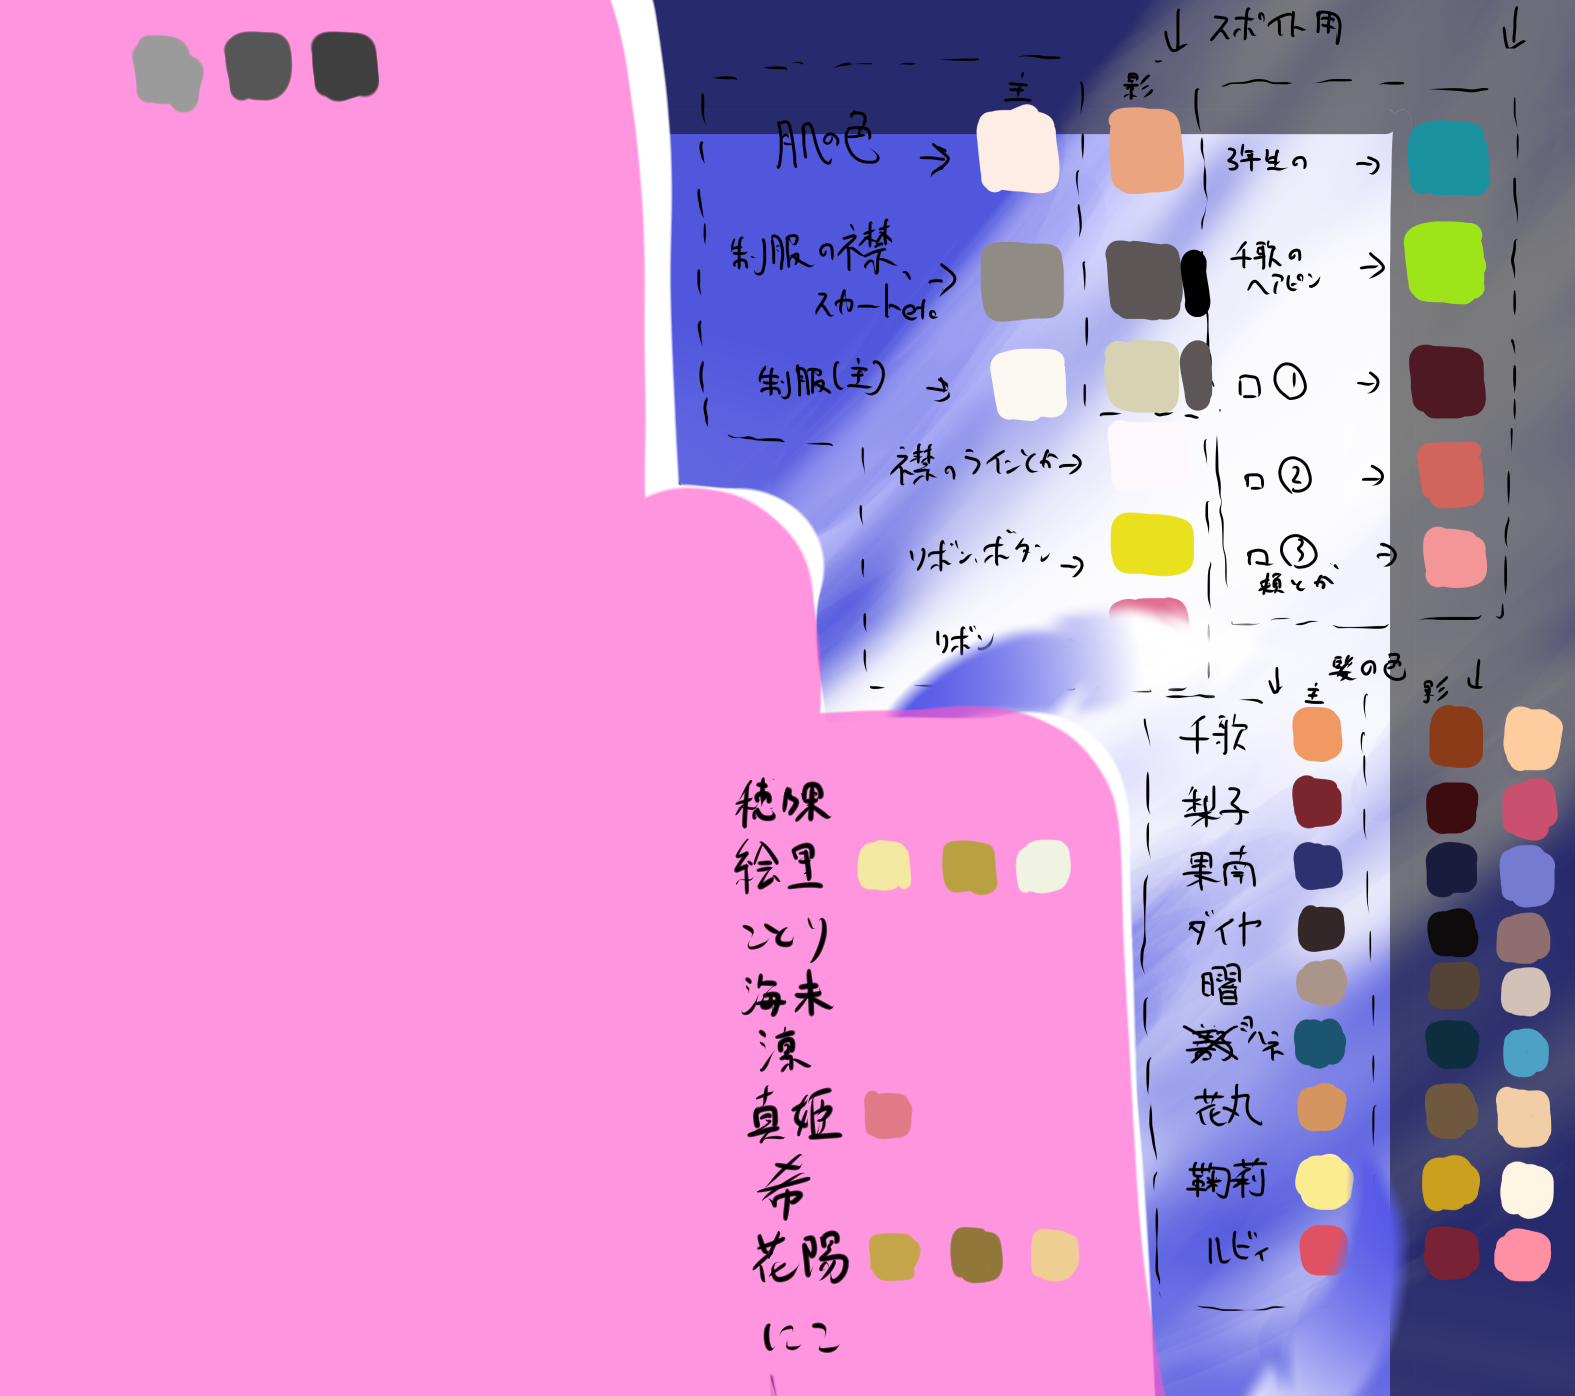 ↓ スポイト用 ↓
主 影
肌の色 →
制服の襟、
スカートetc →
制服(主) →
襟のラインとか→
リボン、ボタン→
リボン
3年生の →
千歌の
ヘアピン →
口① →
口② →
口③ →
頬とか
↓ 髪の色 ↓
主 影
千歌
梨子
果南
ダイヤ
曜
ヨハネ
花丸
鞠莉
ルビィ
穂乃果
絵里
ことり
海未
凛
真姫
希
花陽
にこ